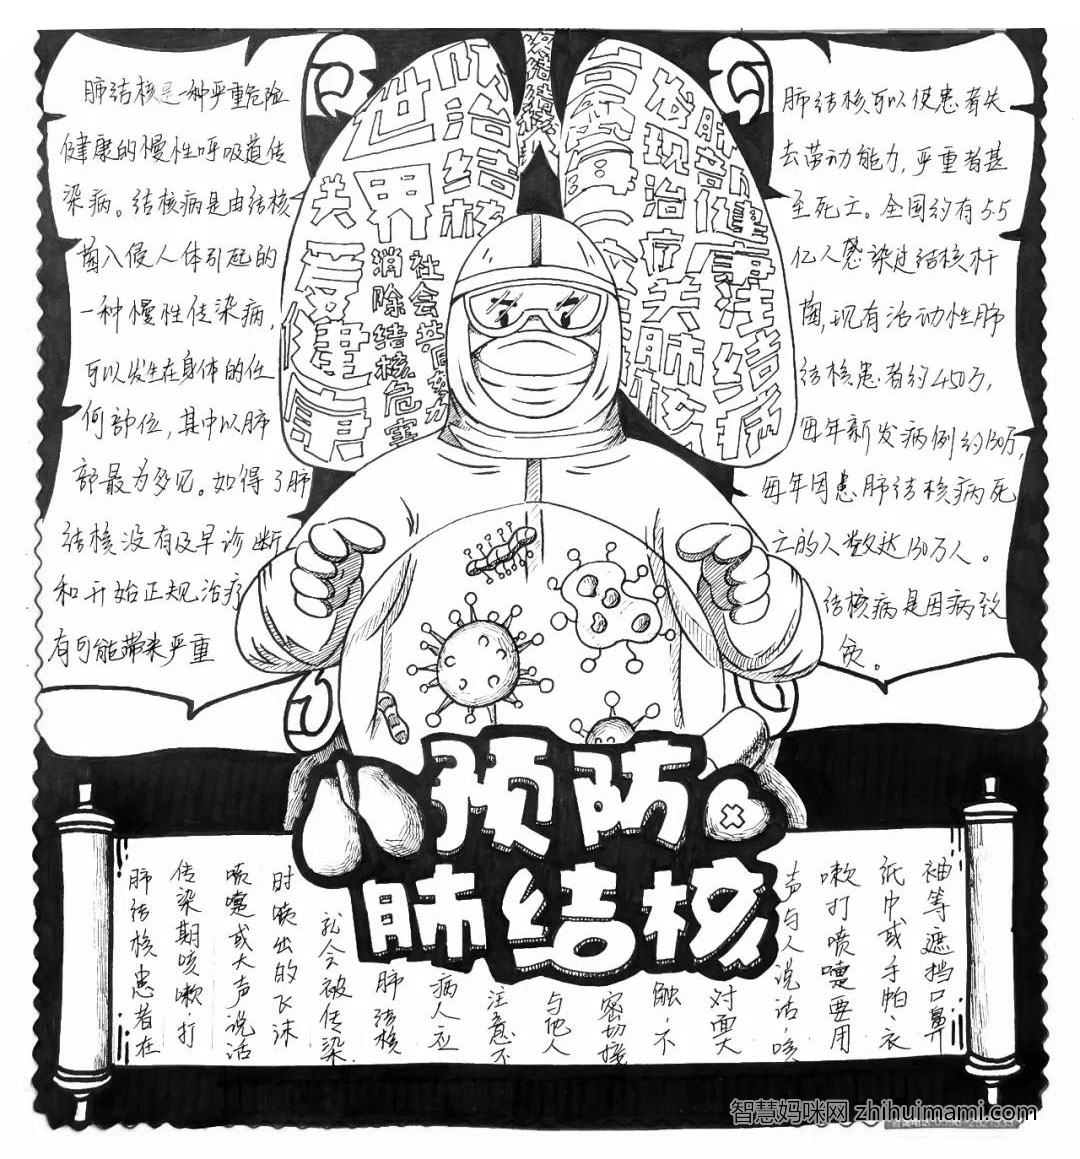 肺结核是一种严重危险
健康的慢性呼吸道传
染病。结核病是由结核
菌入侵人体引起的
一种慢性传染病，
可以发生在身体的任
何部位，其中以肺
部最为多见。如得了肺
结核没有及早诊断
和开始正规治疗
有可能带来严重
世界
防治结核
关爱健康
消除结核危害
社会共同努力
发现治疗关肺核
肺部健康注结病
肺结核可以使患者失
去劳动能力，严重者甚
至死亡。全国约有5.5
亿人感染过结核杆
菌，现有活动性肺
结核患者约450万，
每年新发病例约130万，
每年因患肺结核病死
亡的人数达130万人。
结核病是因病致
贫。
预防
肺结核
肺结核患者在
传染期咳嗽、打
喷嚏或大声说话
时喷出的飞沫
就会被传染
肺结核
病人应
注意不
与他人
密切接
触，不
对面大
声与人说话，咳
嗽打喷嚏要用
纸巾或手帕、衣
袖等遮挡口鼻
智慧妈咪网 zhihuimami.com